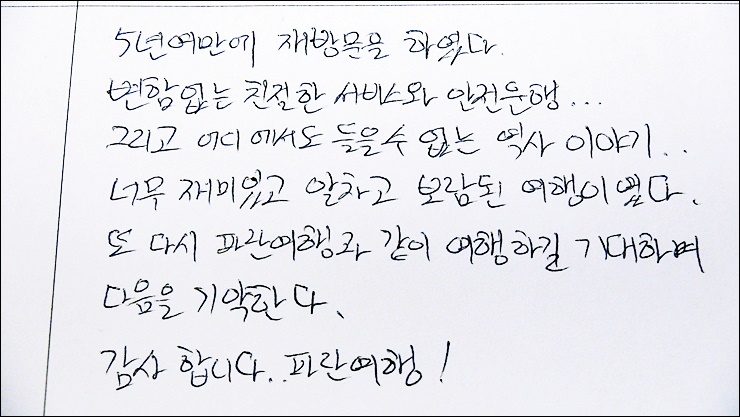 5년여만에 재방문을 하였다.
변함없는 친절한 서비스와 안전운행...
그리고 어디에서도 들을수 없는 역사 이야기..
너무 재미있고 알차고 보람된 여행이였다.
또 다시 파란여행과 같이 여행하길 기대하며
다음을 기약한다.
감사 합니다.. 파란여행!